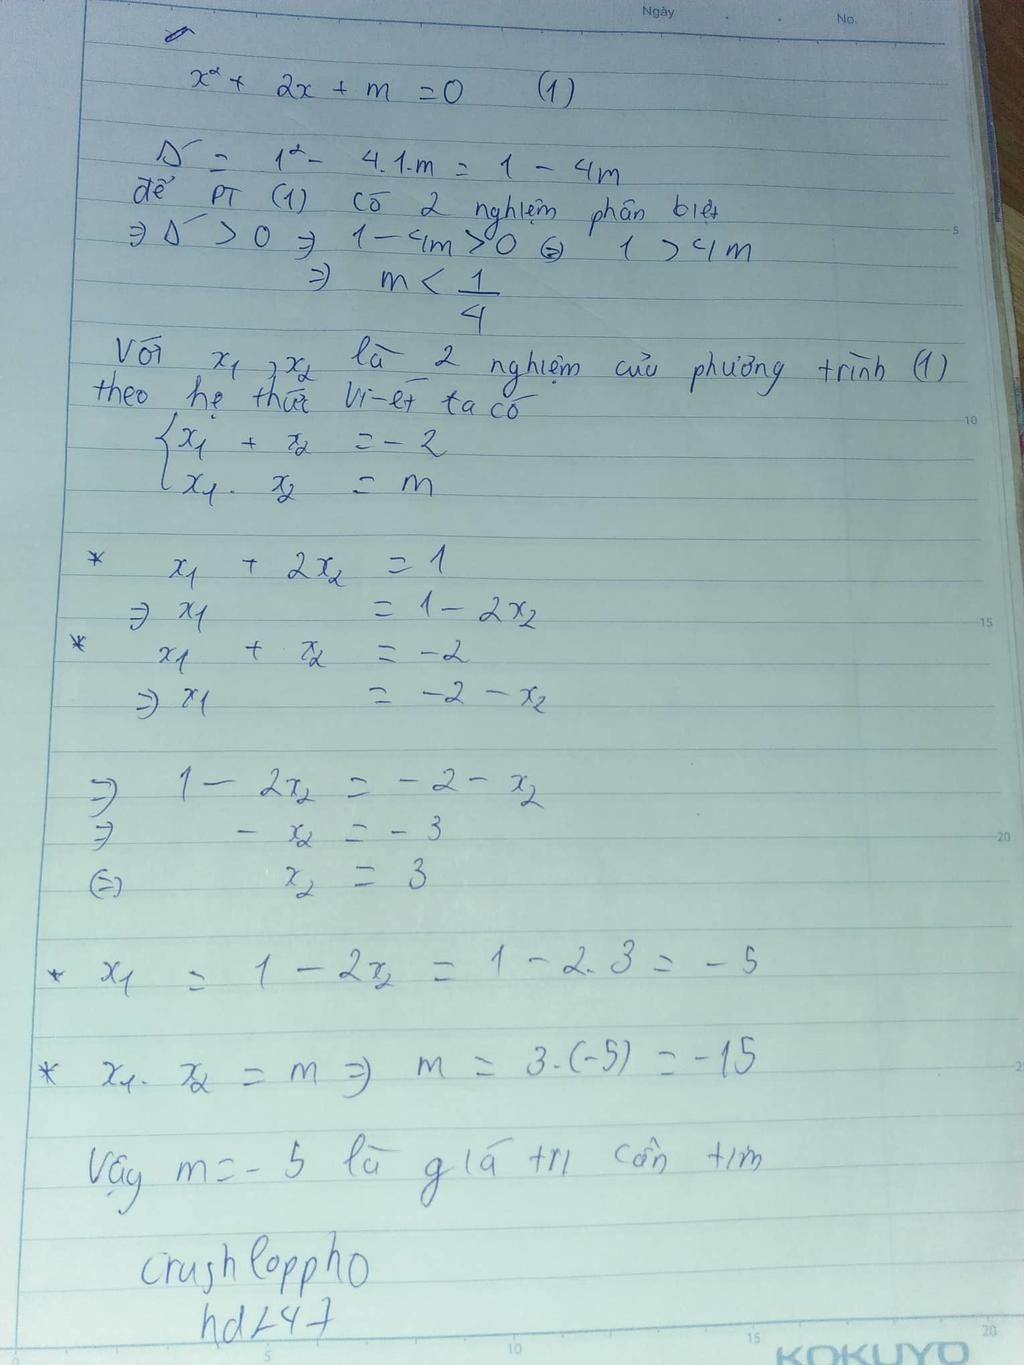 Ngày No.
x² + 2x + m = 0 (1)
Δ = 1² - 4.1.m = 1 - 4m
để PT (1) có 2 nghiệm phân biệt
⇒ Δ > 0 ⇒ 1 - 4m > 0 ⇔ 1 > 4m
⇒ m < 1/4
Với x1, x2 là 2 nghiệm của phương trình (1)
theo hệ thức Vi-ét ta có
{ x1 + x2 = -2
x1. x2 = m
* x1 + 2x2 = 1
⇒ x1 = 1 - 2x2
* x1 + x2 = -2
⇒ x1 = -2 - x2
⇒ 1 - 2x2 = -2 - x2
⇒ - x2 = -3
⇔ x2 = 3
* x1 = 1 - 2x2 = 1 - 2.3 = -5
* x1. x2 = m ⇒ m = 3.(-5) = -15
Vậy m = -5 là giá trị cần tìm
crushloppho
5
10
15
20
5 10 15 20
KOKUYO